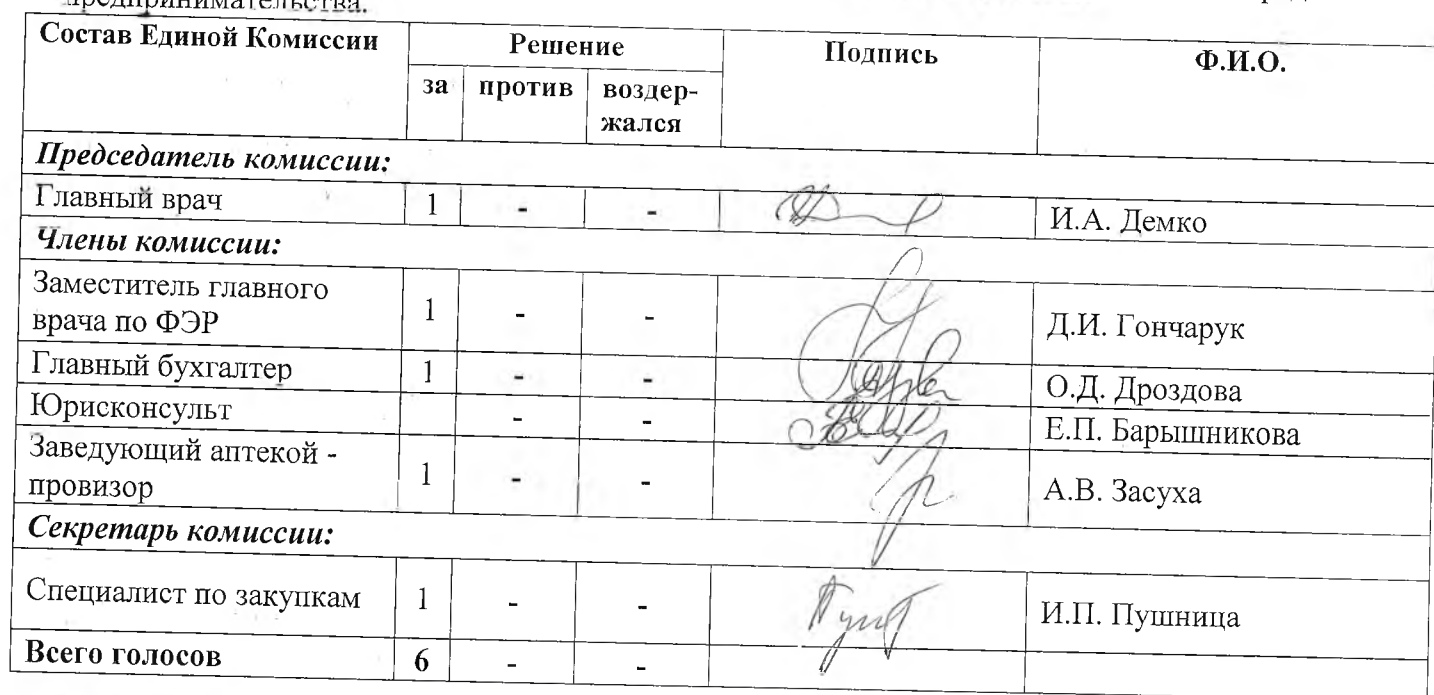 предпринимательства.
Состав Единой Комиссии Решение Подпись Ф.И.О.
за против воздер-
жался
Председатель комиссии:
Главный врач 1 - - И.А. Демко
Члены комиссии:
Заместитель главного
врача по ФЭР 1 - - Д.И. Гончарук
Главный бухгалтер 1 - - О.Д. Дроздова
Юрисконсульт - - Е.П. Барышникова
Заведующий аптекой -
провизор 1 - - А.В. Засуха
Секретарь комиссии:
Специалист по закупкам 1 - - И.П. Пушница
Всего голосов 6 - -